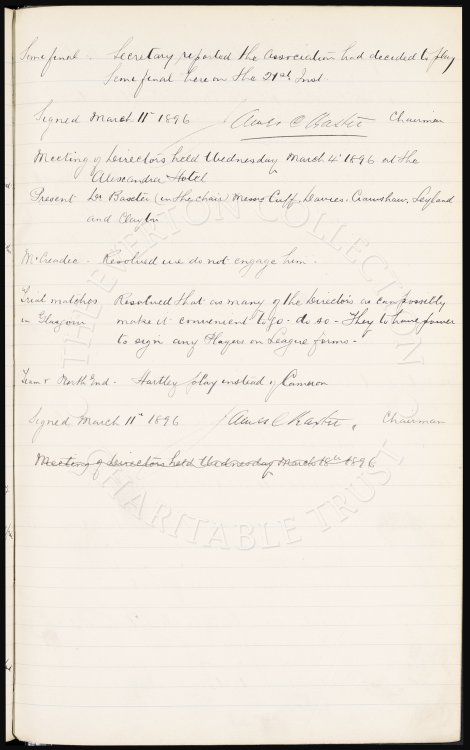 Semi final. Secretary reported the Association had decided to play
Semi final here on the 21st Inst.
Signed March 11th 1896 James C Baxter Chairman
Meeting of Directors held Wednesday March 4th 1896 at the
Alexandra Hotel
Present Dr Baxter (in the chair) Messrs Cuff, Davies, Crawshaw, Leyland
and Clayton
McCreadie - Resolved we do not engage him.
Trial matches Resolved that as many of the Directors as can possibly
in Glasgow make it convenient to go - do so - They to have power
to sign any Players on League forms -
Team v North End - Hartley play instead of Cameron
Signed March 11th 1896 James C Baxter, Chairman
Meeting of Directors held Wednesday March 18th 1896
THE EVERTON COLLECTION
CHARITABLE TRUST